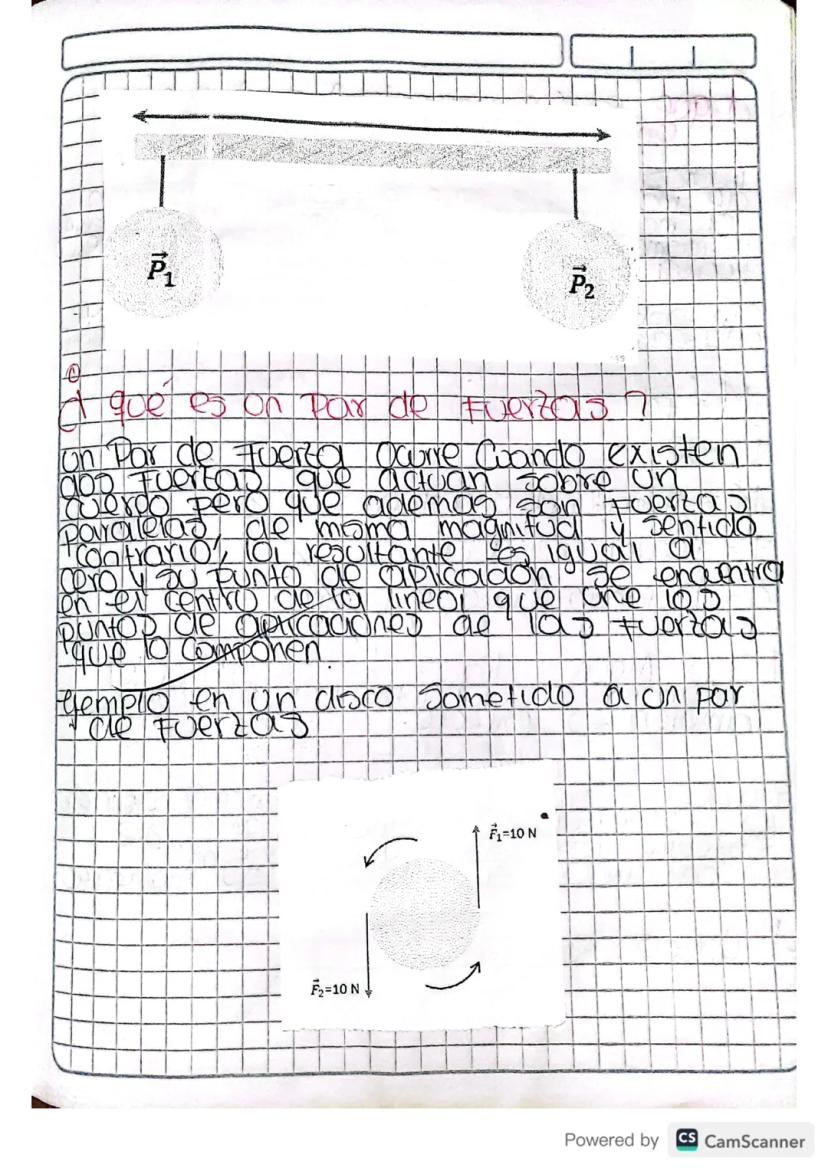 P⃗1
P⃗2
¿ qué es un Par de Fuerzas ?
un Par de Fuerza ocurre Cuando existen
dos Fuerzas que actuan sobre un
cuerpo pero que ademas son Fuerzas
paralelas, de misma magnitud y sentido
contrario, la resultante es igual a
cero y su punto de aplicación se encuentra
en el centro de la linea que une los
puntos de aplicaciones de las Fuerzas
que lo componen.
ejemplo en un disco Sometido a un par
de Fuerzas
F⃗1=10 N
F⃗2=10 N
Powered by CS CamScanner